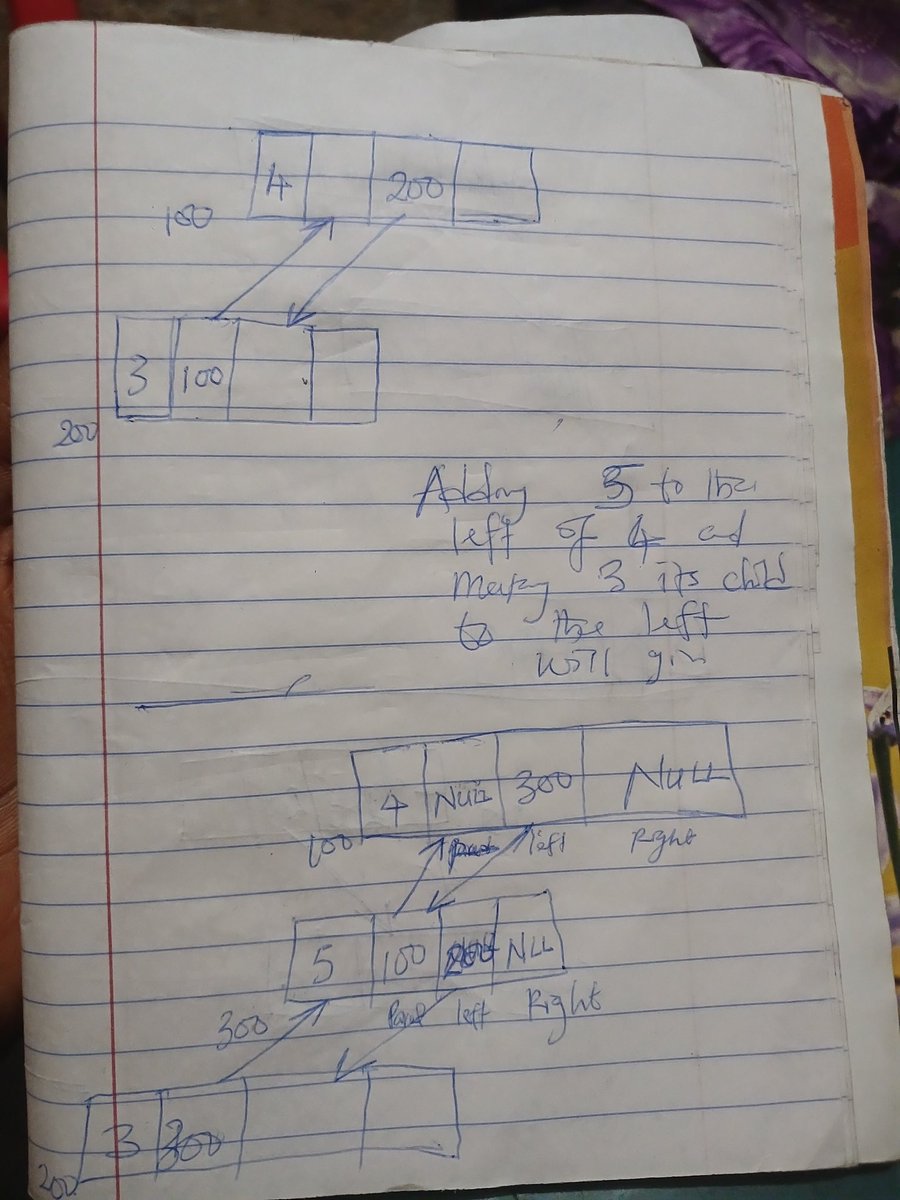 4 200
100
3 100
200
Adding 5 to the
left of 4 and
Making 3 its child
to the left
will give
4 NULL 300 NULL
100 left Right
5 100 200 NULL
300 Parent left Right
3 300
200